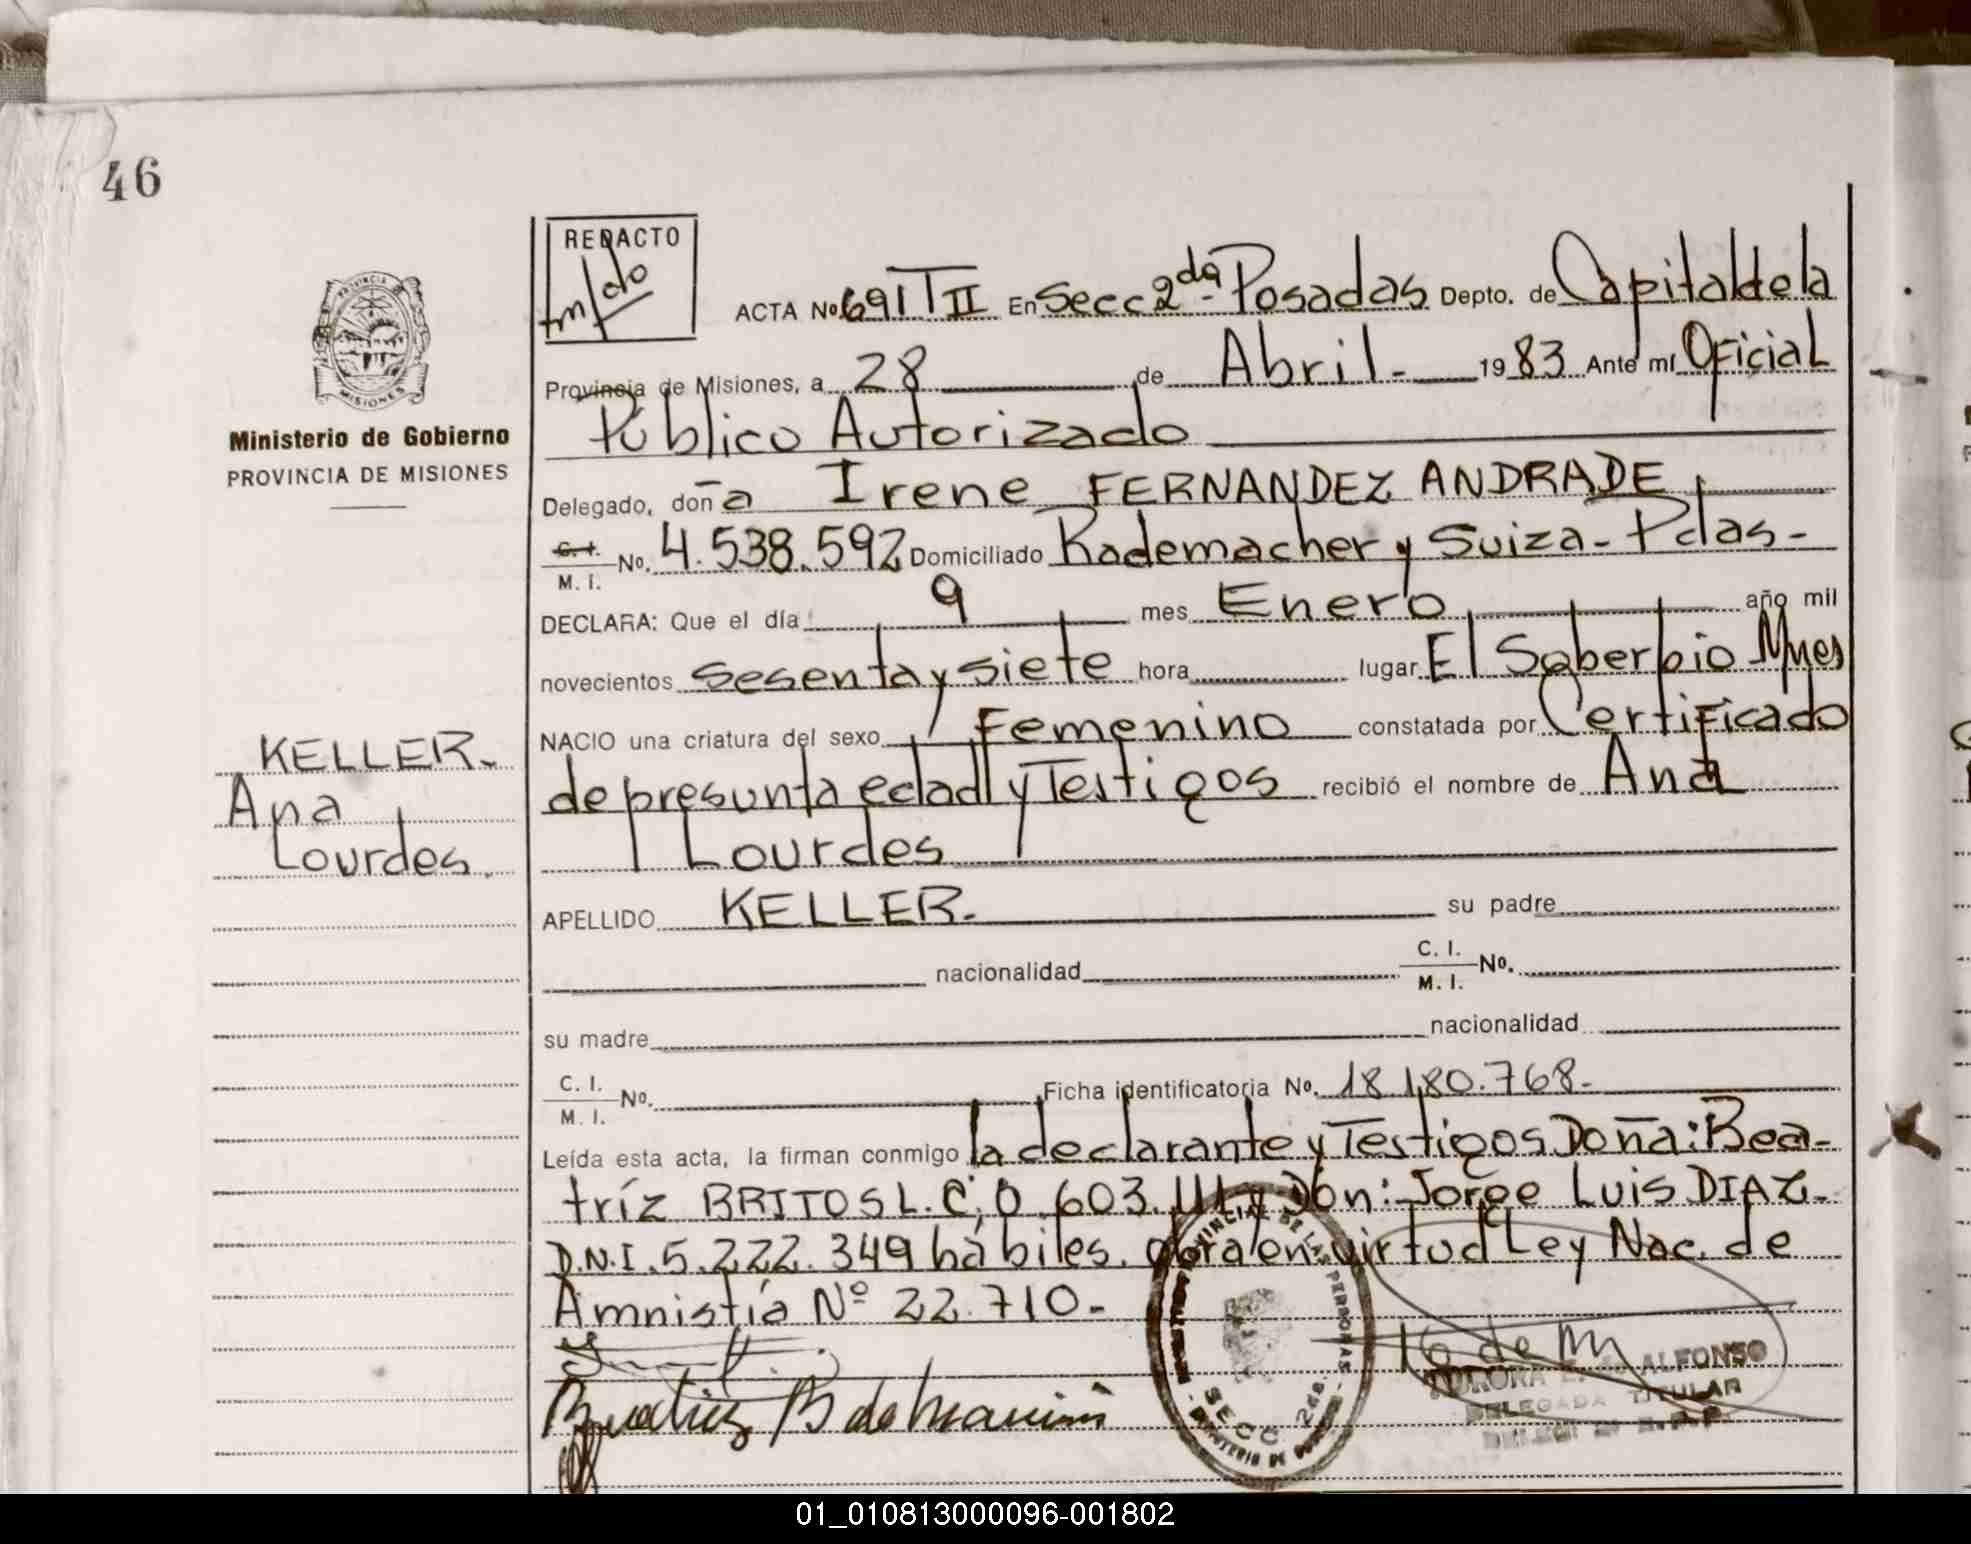 46
REDACTO
PROVINCIA
MISIONES
Ministerio de Gobierno
PROVINCIA DE MISIONES
ACTA Nº 691 T II En Secc 2da- Posadas Depto. de Capital de la
Provincia de Misiones, a 28 de Abril - 1983 Ante mí Oficial
Público Autorizado
Delegado, doña Irene FERNANDEZ ANDRADE
C. I.
M. I. No. 4.538.592 Domiciliado Rademacher y Suiza - Pdas -
DECLARA: Que el día 9 mes Enero año mil
novecientos Sesenta y siete hora lugar El Soberbio Mnes
NACIO una criatura del sexo Femenino constatada por Certificado
de presunta edad y Testigos recibió el nombre de Ana
Lourdes
KELLER.
Ana
Lourdes.
APELLIDO KELLER. su padre
nacionalidad C. I. M. I. Nº.
su madre nacionalidad
C. I. M. I. Nº. Ficha identificatoria Nº. 18.180.768.
Leída esta acta, la firman conmigo la declarante y Testigos Doña: Bea-
tríz BRITOS L.C. 0.603. y Don: Jorge Luis DIAZ -
D.N.I. 5.222.349 hábiles. obra en virtud Ley Nac. de
Amnistía Nº 22.710 -
Beatriz B de
PROVINCIAL DE LAS PERSONAS
SECC 2da.
ALFONSO
DELEGADA TITULAR
01_010813000096-001802